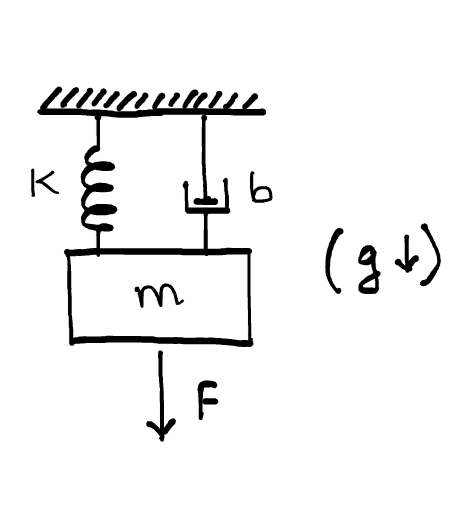 K
b
m
(g↓)
F